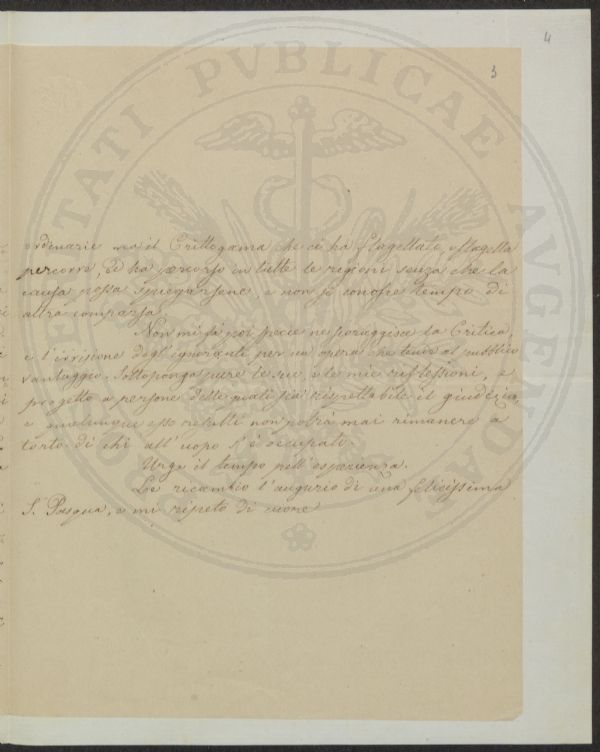 4
3
PROSPERITATI PVBLICAE AVGENDAE
ordinarie ma il Crittogama che ci ha flagellato, e flagella
percorre, ed ha percorso in tutte le regioni senza che la
causa possa spiegarsene, e non si conosce tempo di
altra comparsa.
Non mi fa poi specie ne scoraggisce la Critica,
e l'irrisione degl'ignoranti per un'opera che tende al pubblico
vantaggio. Sottopongo pure le sue e le mie riflessioni, e
progetto a persone delle quali sia rispettabile il giudizio,
e qualunque esso risulti non potrà mai rimanere a
torto di chi all'uopo s'è occupato.
Urge il tempo pell'esperienza.
Le ricambio l'augurio di una felicissima
S. Pasqua, e mi ripeto di cuore